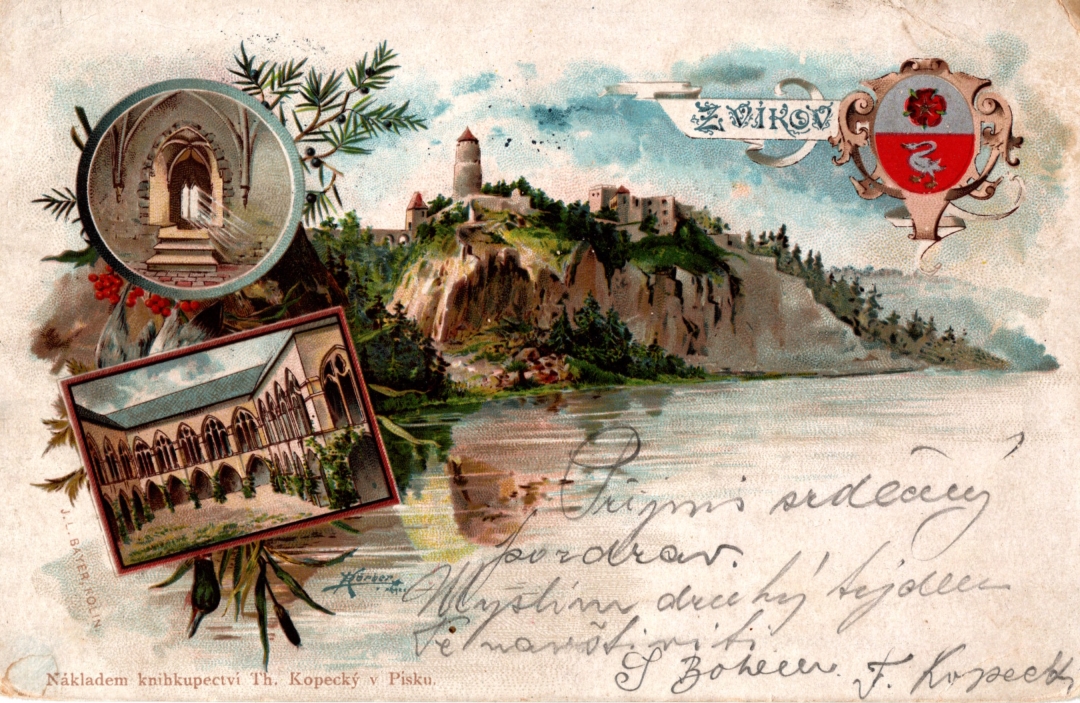 ZVÍKOV
Přijmi srdečný
pozdrav.
Myslím druhý týden
Tě navštíviti.
S Bohem. F. Kopecký
Körber
J. L. BAYER, KOLÍN
Nákladem knihkupectví Th. Kopecký v Písku.